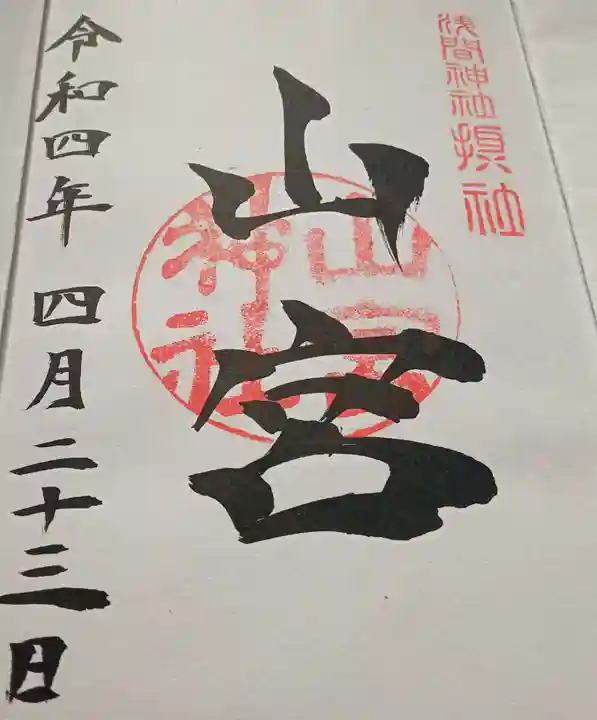 浅間神社摂社
山宮
山宮神社
令和四年 四月二十三日